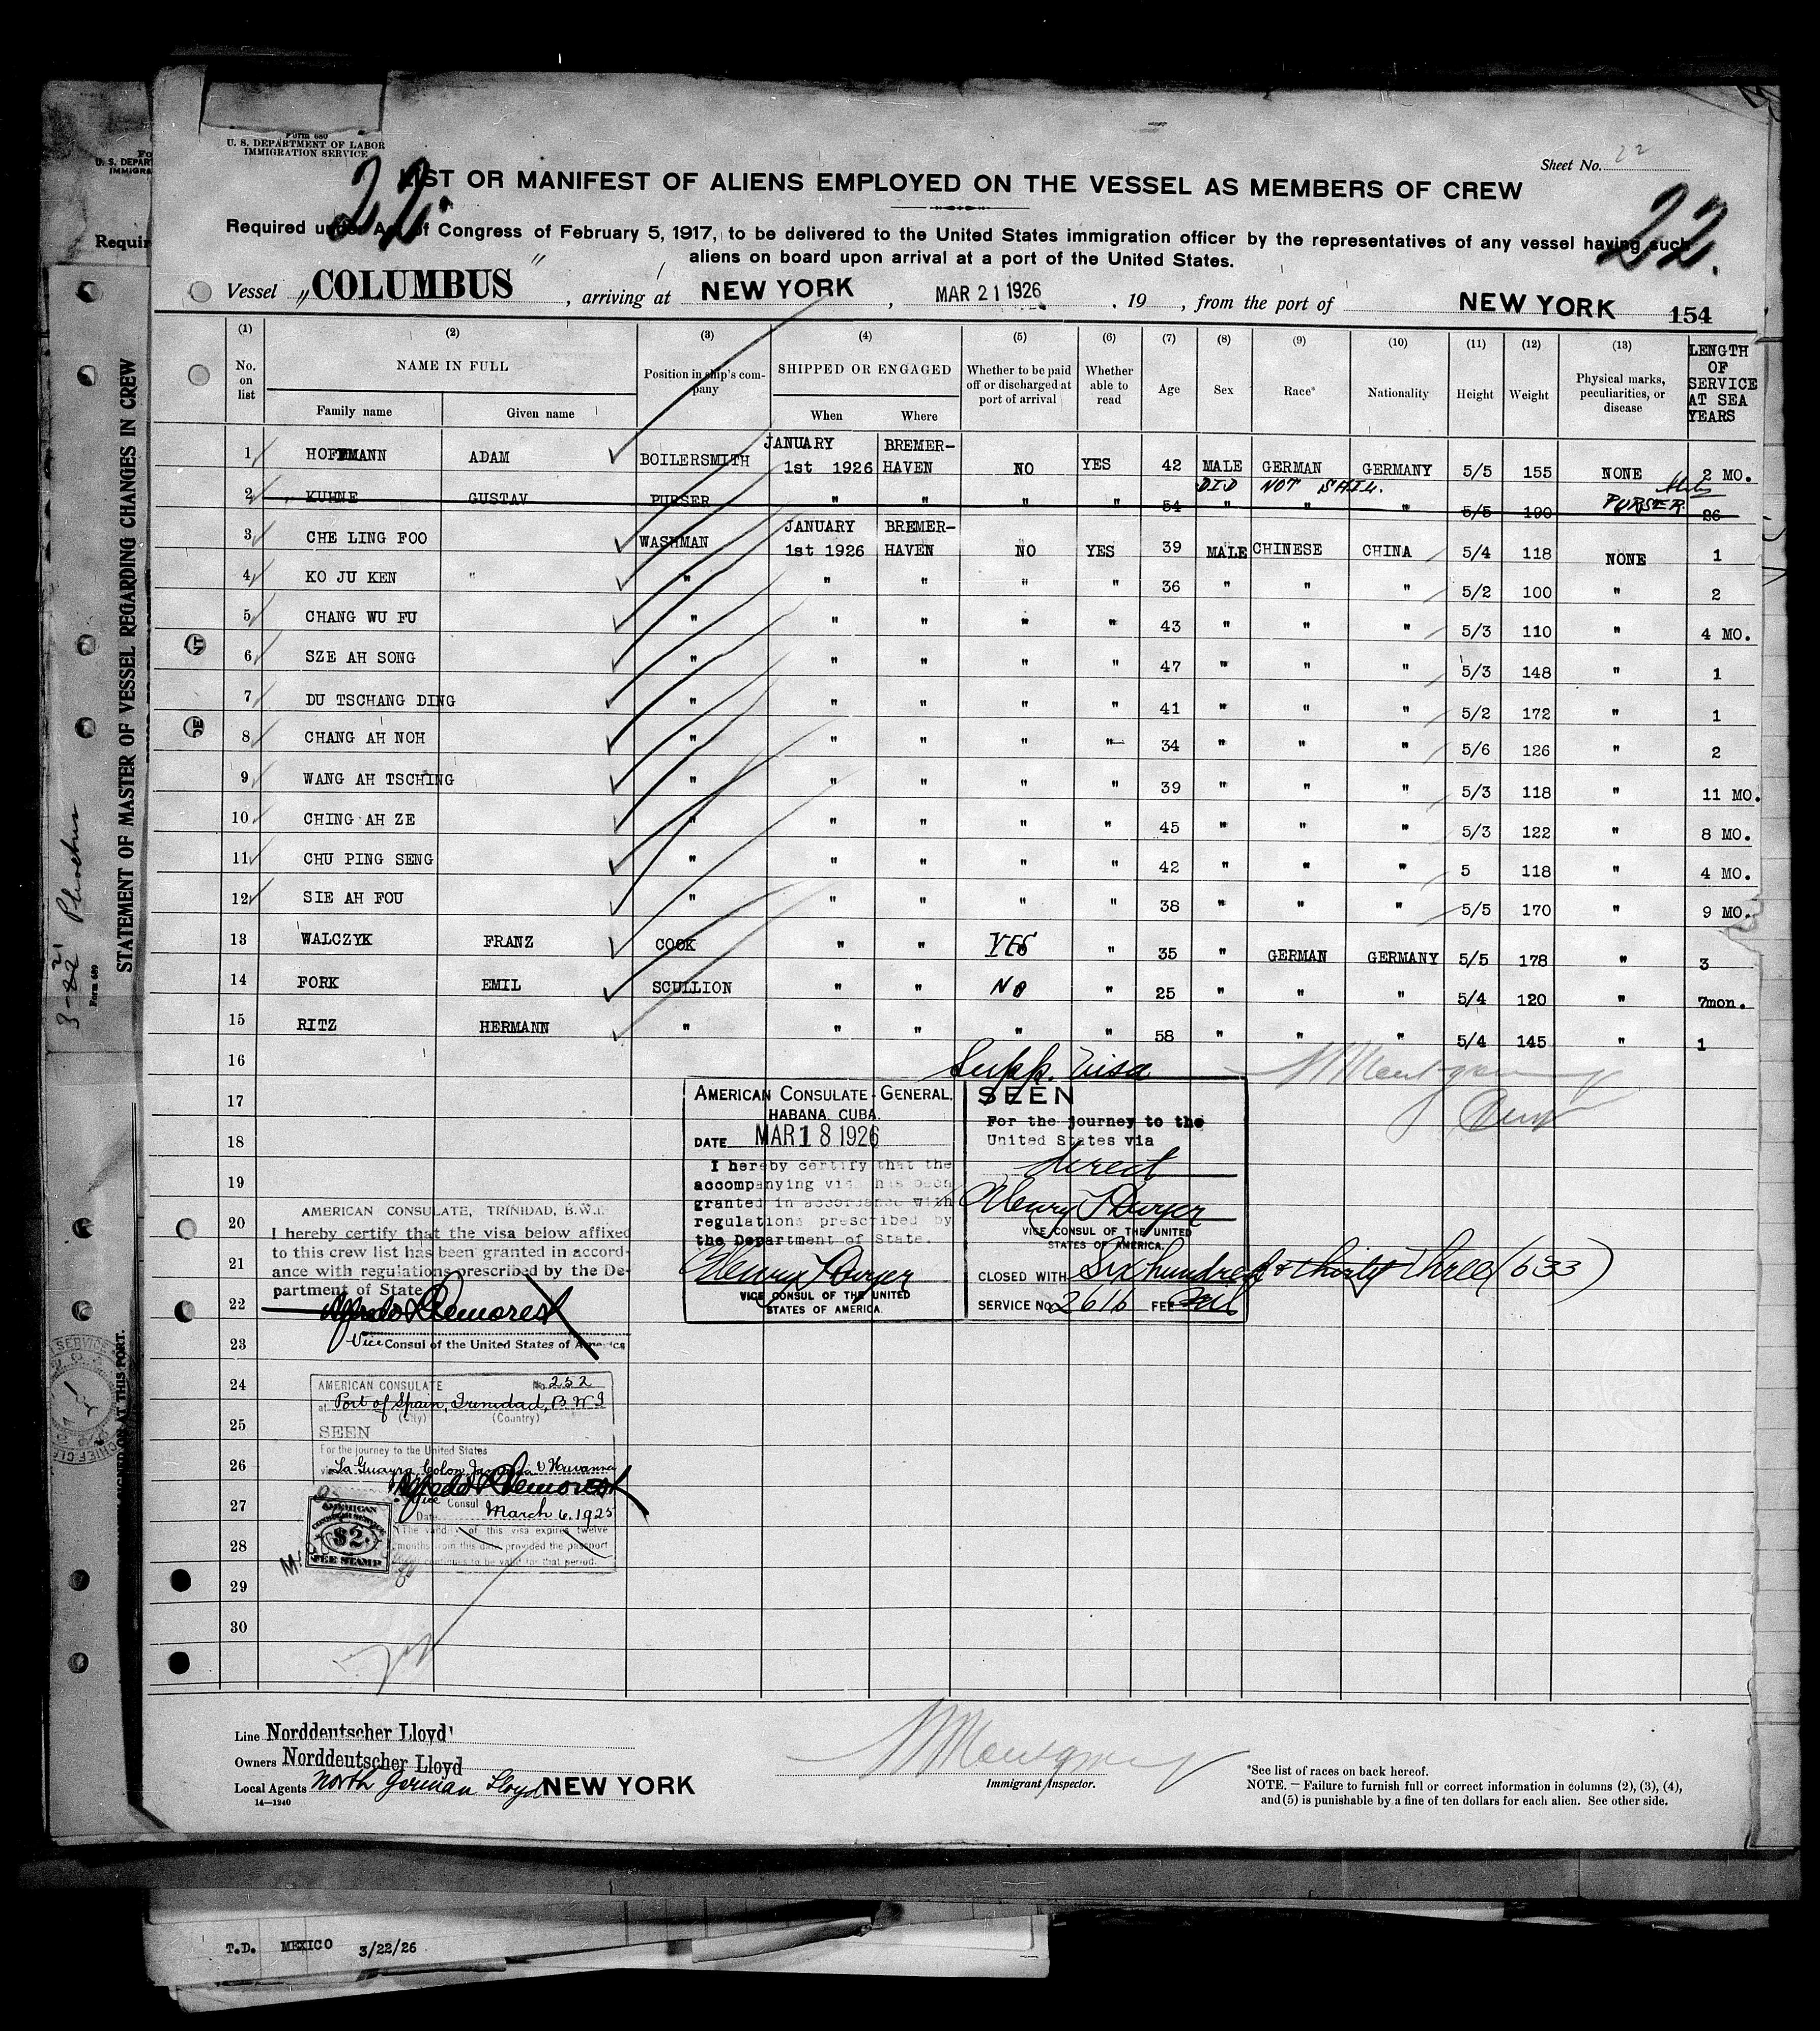 Form 680
U. S. DEPARTMENT OF LABOR
IMMIGRATION SERVICE
Sheet No. 22
22.
LIST OR MANIFEST OF ALIENS EMPLOYED ON THE VESSEL AS MEMBERS OF CREW
22.
Required under Act of Congress of February 5, 1917, to be delivered to the United States immigration officer by the representatives of any vessel having such
aliens on board upon arrival at a port of the United States.
Vessel „COLUMBUS", arriving at NEW YORK, MAR 21 1926, 19 , from the port of NEW YORK 154
(1) (2) (3) (4) (5) (6) (7) (8) (9) (10) (11) (12) (13)
No. on list NAME IN FULL Family name Given name Position in ship's company SHIPPED OR ENGAGED When Where Whether to be paid off or discharged at port of arrival Whether able to read Age Sex Race* Nationality Height Weight Physical marks, peculiarities, or disease LENGTH OF SERVICE AT SEA YEARS
1 HOFFMANN ADAM BOILERSMITH JANUARY 1st 1926 BREMER-HAVEN NO YES 42 MALE GERMAN GERMANY 5/5 155 NONE 2 MO.
DID NOT SAIL.
2 KUHNE GUSTAV PURSER " " " " 54 " " " 5/5 190 PURSER 26
3 CHE LING FOO WASHMAN JANUARY 1st 1926 BREMER-HAVEN NO YES 39 MALE CHINESE CHINA 5/4 118 NONE 1
4 KO JU KEN " " " " " " 36 " " " 5/2 100 " 2
5 CHANG WU FU " " " " " 43 " " " 5/3 110 " 4 MO.
6 SZE AH SONG " " " " " 47 " " " 5/3 148 " 1
7 DU TSCHANG DING " " " " " 41 " " " 5/2 172 " 1
8 CHANG AH NOH " " " " " 34 " " " 5/6 126 " 2
9 WANG AH TSCHING " " " " " 39 " " " 5/3 118 " 11 MO.
10 CHING AH ZE " " " " " 45 " " " 5/3 122 " 8 MO.
11 CHU PING SENG " " " " " 42 " " " 5 118 " 4 MO.
12 SIE AH FOU " " " " " 38 " " " 5/5 170 " 9 MO.
13 WALCZYK FRANZ COOK " " YES " 35 " GERMAN GERMANY 5/5 178 " 3
14 FORK EMIL SCULLION " " NO " 25 " " " 5/4 120 " 7mon.
15 RITZ HERMANN " " " " " 58 " " " 5/4 145 " 1
16
17
18
19
20
21
22
23
24
25
26
27
28
29
30
Supp. Visa
AMERICAN CONSULATE-GENERAL,
HABANA, CUBA.
DATE MAR 18 1926
I hereby certify that the
accompanying visa has been
granted in accordance with
regulations prescribed by
the Department of State.
Henry T Dwyer
VICE CONSUL OF THE UNITED
STATES OF AMERICA.
SEEN
For the journey to the
United States via
direct
Henry T Dwyer
VICE CONSUL OF THE UNITED
STATES OF AMERICA.
CLOSED WITH Six hundred & thirty three (633)
SERVICE No. 2616 FEE
AMERICAN CONSULATE, TRINIDAD, B.W.I.
I hereby certify that the visa below affixed
to this crew list has been granted in accord-
ance with regulations prescribed by the De-
partment of State
Alfredo L Demorest
Vice Consul of the United States of America
AMERICAN CONSULATE No. 252
at Port of Spain, Trinidad, B W I
(City) (Country)
SEEN
For the journey to the United States
via La Guayra, Colon, Jamaica & Havanna
Alfredo L Demorest
Vice Consul
Date March 6, 1925
(The validity of this visa expires twelve
months from this date provided the passport
continues to be valid for that period.
AMERICAN
CONSULAR SERVICE
$2.
FEE STAMP
Line Norddeutscher Lloyd
Owners Norddeutscher Lloyd
Local Agents North German Lloyd NEW YORK
14—1240
Immigrant Inspector.
*See list of races on back hereof.
NOTE.—Failure to furnish full or correct information in columns (2), (3), (4),
and (5) is punishable by a fine of ten dollars for each alien. See other side.
STATEMENT OF MASTER OF VESSEL REGARDING CHANGES IN CREW
Form 689
T.D. MEXICO 3/22/26